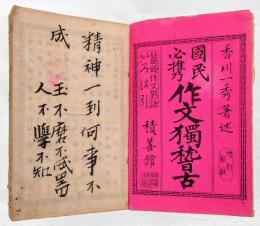 香川一秀著述
國民
必携
作文獨稽古
いろは引
積善館
精神一到何事不
成
玉不磨不成器
人不學不知